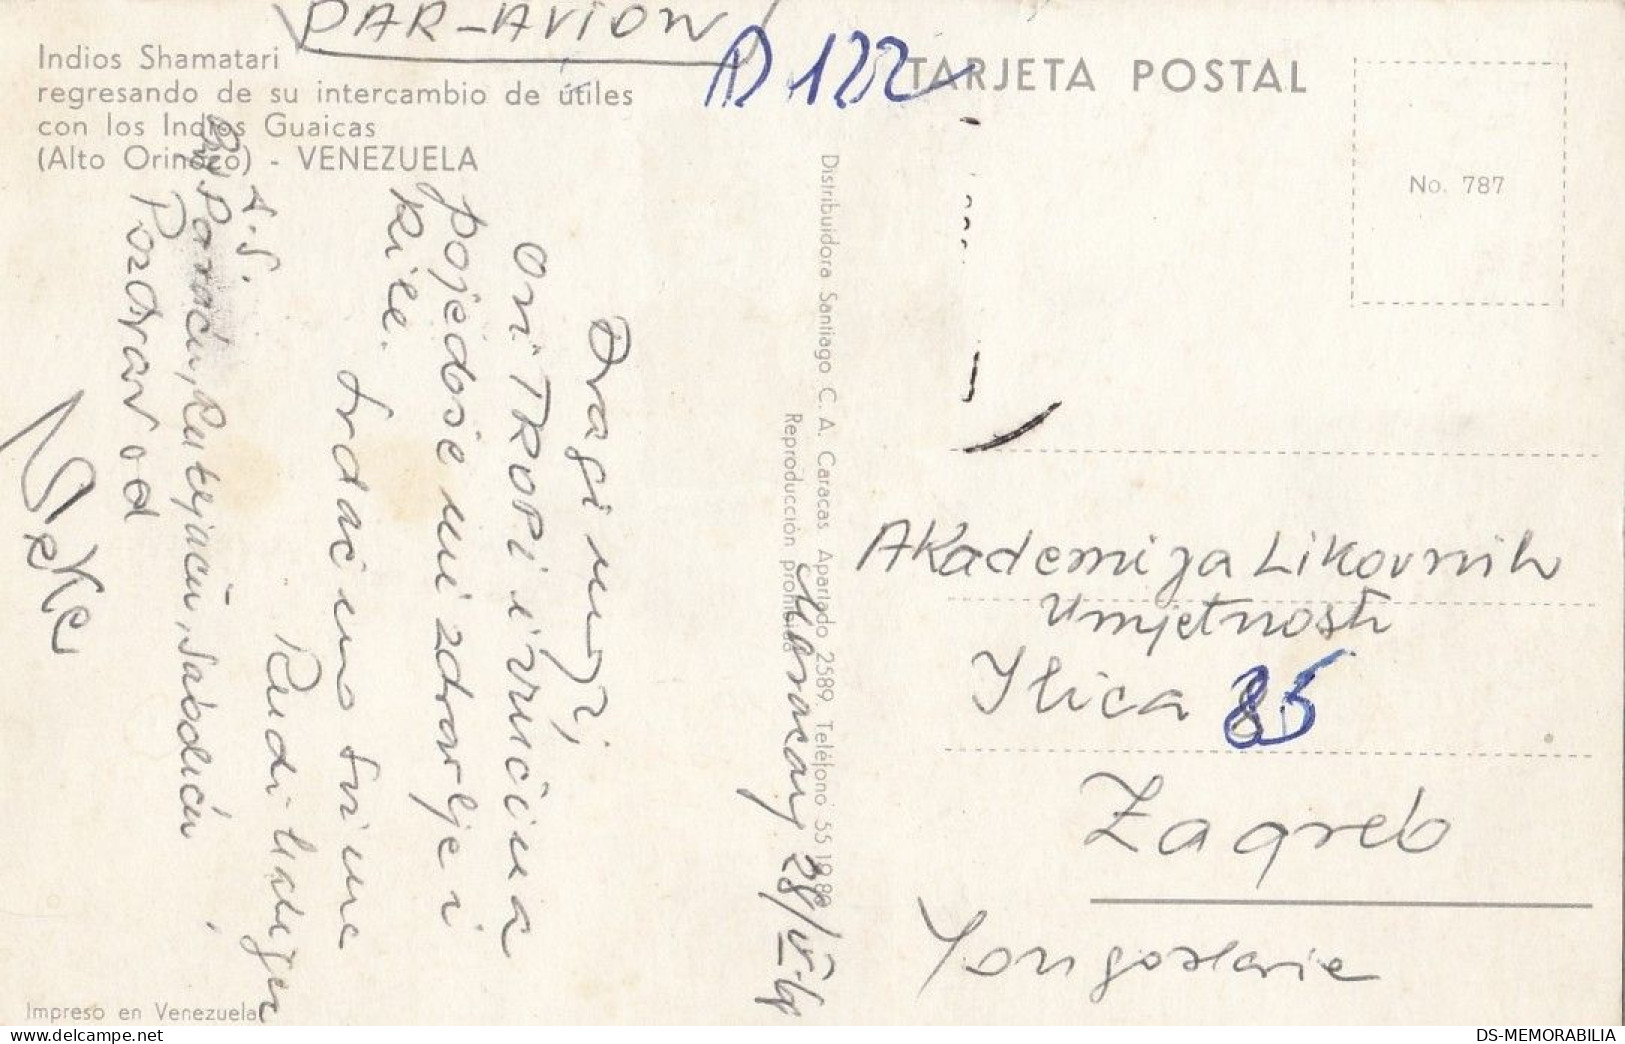 PAR-AVION
Indios Shamatari
regresando de su intercambio de útiles
con los Indios Guaicas
(Alto Orinoco) - VENEZUELA
D 122
TARJETA POSTAL
No. 787
Distribuidora Santiago C. A. Caracas. Apartado 2589. Teléfono 55 19 89
Reproducción prohibida
Maracay 28/V
Dragi moji,
Oni TROPI i vrućina
pojedoše mi zdravlje i
kile.
Srdačno Vaš
Rudi
Pozdrav od
Seke
Akademija Likovnih
Umjetnosti
Ilica 85
Zagreb
Yougoslavie
Impreso en Venezuela
DS-MEMORABILIA